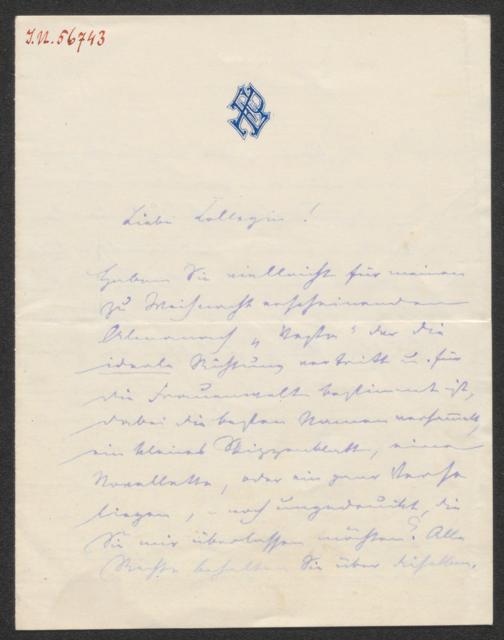 I.N. 56743
Liebe Collegin!
Haben Sie vielleicht für meinen
zu Weihnacht erscheinenden
Almanach „Vesta" der die
ideale Richtung vertritt u. für
die Frauenwelt bestimmt ist,
dabei die besten Namen versammelt,
ein kleines Skizzenblatt, eine
Novellette, oder ein paar Verse
liegen, – noch ungedruckt, die
Sie mir überlassen möchten? Alle
Rechte behalten Sie über dieselben.